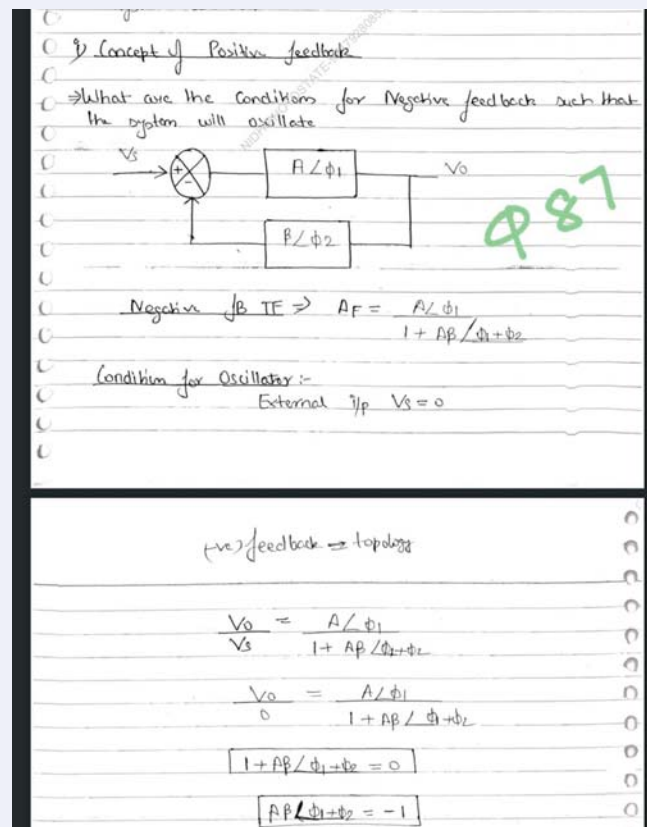 i) Concept of Positive feedback
⇒What are the Conditions for Negative feedback such that
the system will oscillate
Vs
+
-
A∠ϕ1
Vo
β∠ϕ2
Q 87
Negative fB TF ⇒ AF = A∠ϕ1 / 1 + Aβ∠ϕ1+ϕ2
Condition for Oscillator :-
External i/p Vs = 0
(-ve) feedback = topology
Vo / Vs = A∠ϕ1 / 1 + Aβ∠ϕ1+ϕ2
Vo / 0 = A∠ϕ1 / 1 + Aβ∠ϕ1+ϕ2
1 + Aβ∠ϕ1+ϕ2 = 0
Aβ∠ϕ1+ϕ2 = -1